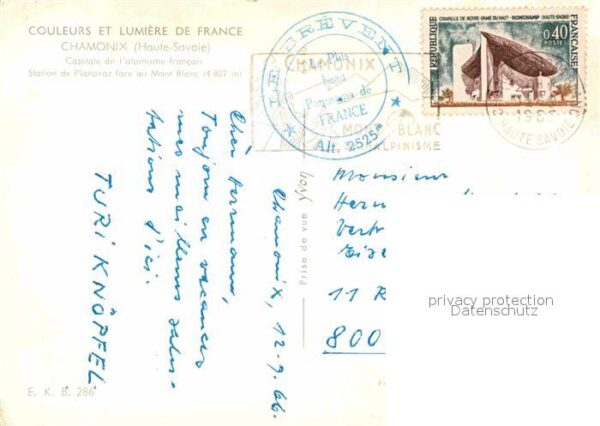 COULEURS ET LUMIÈRE DE FRANCE
CHAMONIX (Haute-Savoie)
Capitale de l'alpinisme français
Station de Planpraz face au Mont Blanc (4.807 m)
LE BREVENT
Le Plus
beau
Panorama de
FRANCE
Alt. 2525m
CHAMONIX
MONT-BLANC
ALPINISME
RÉPUBLIQUE FRANÇAISE
CHAPELLE DE NOTRE-DAME DU HAUT - RONCHAMP (HAUTE-SAÔNE)
0,40
POSTES
HAUTE SAVOIE
Chamonix, 12-9.66.
Cher Hermann,
Toujours en vacances
mes meilleures salu-
tations d'ici.
TURI KNÖPFEL
Prise de vue
Monsieur
Herm
11 R
800
privacy protection
Datenschutz
E. K. B. 286